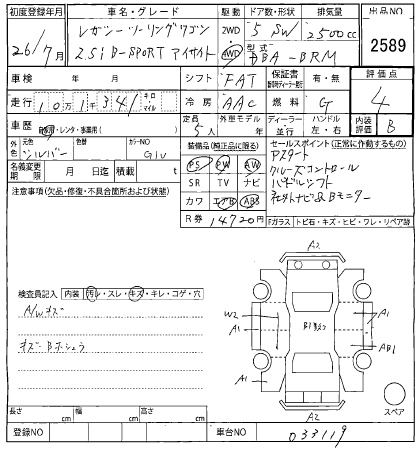 初度登録年月 車名・グレード 駆動 ドア数・形状 排気量 出品NO
26/7月 レガシーツーリングワゴン 2WD 5 SW 2500cc 2589
2.5i B-SPORT アイサイト 4WD 型式 DBA-BRM
車検 年 月 シフト FAT 保証書 有・無 評価点
走行 10万1千341 キロ マイル 冷房 AAC 燃料 G 4
車歴 自家用・レンタ・事業用( ) 定員 5人 外車モデル 年 ディーラー 並行 ハンドル 左・右 内装評価 B
外色 元色 シルバー 色替 カラーNO G1U 装備品(純正品に限る) セールスポイント(正常に作動するもの)
名義変更期限 月 日迄 積載 t PS PW AW アスタート
注意事項(欠品・修復・不具合箇所および状態) SR TV ナビ クルーズコントロール
カワ エアB ABS パドルシフト
R券 14720円 ナビ&Bモニター
Fガラス トビ石・キズ・ヒビ・ワレ・リペア跡
検査員記入 内装 汚レ・スレ・キズ・キレ・コゲ・穴
A/Wキズ
キズBホシュウ
A2
W2
A1
A1
AB1
A1
A2
スペア
長さ cm 幅 cm 高さ cm
登録NO 車台NO 033119